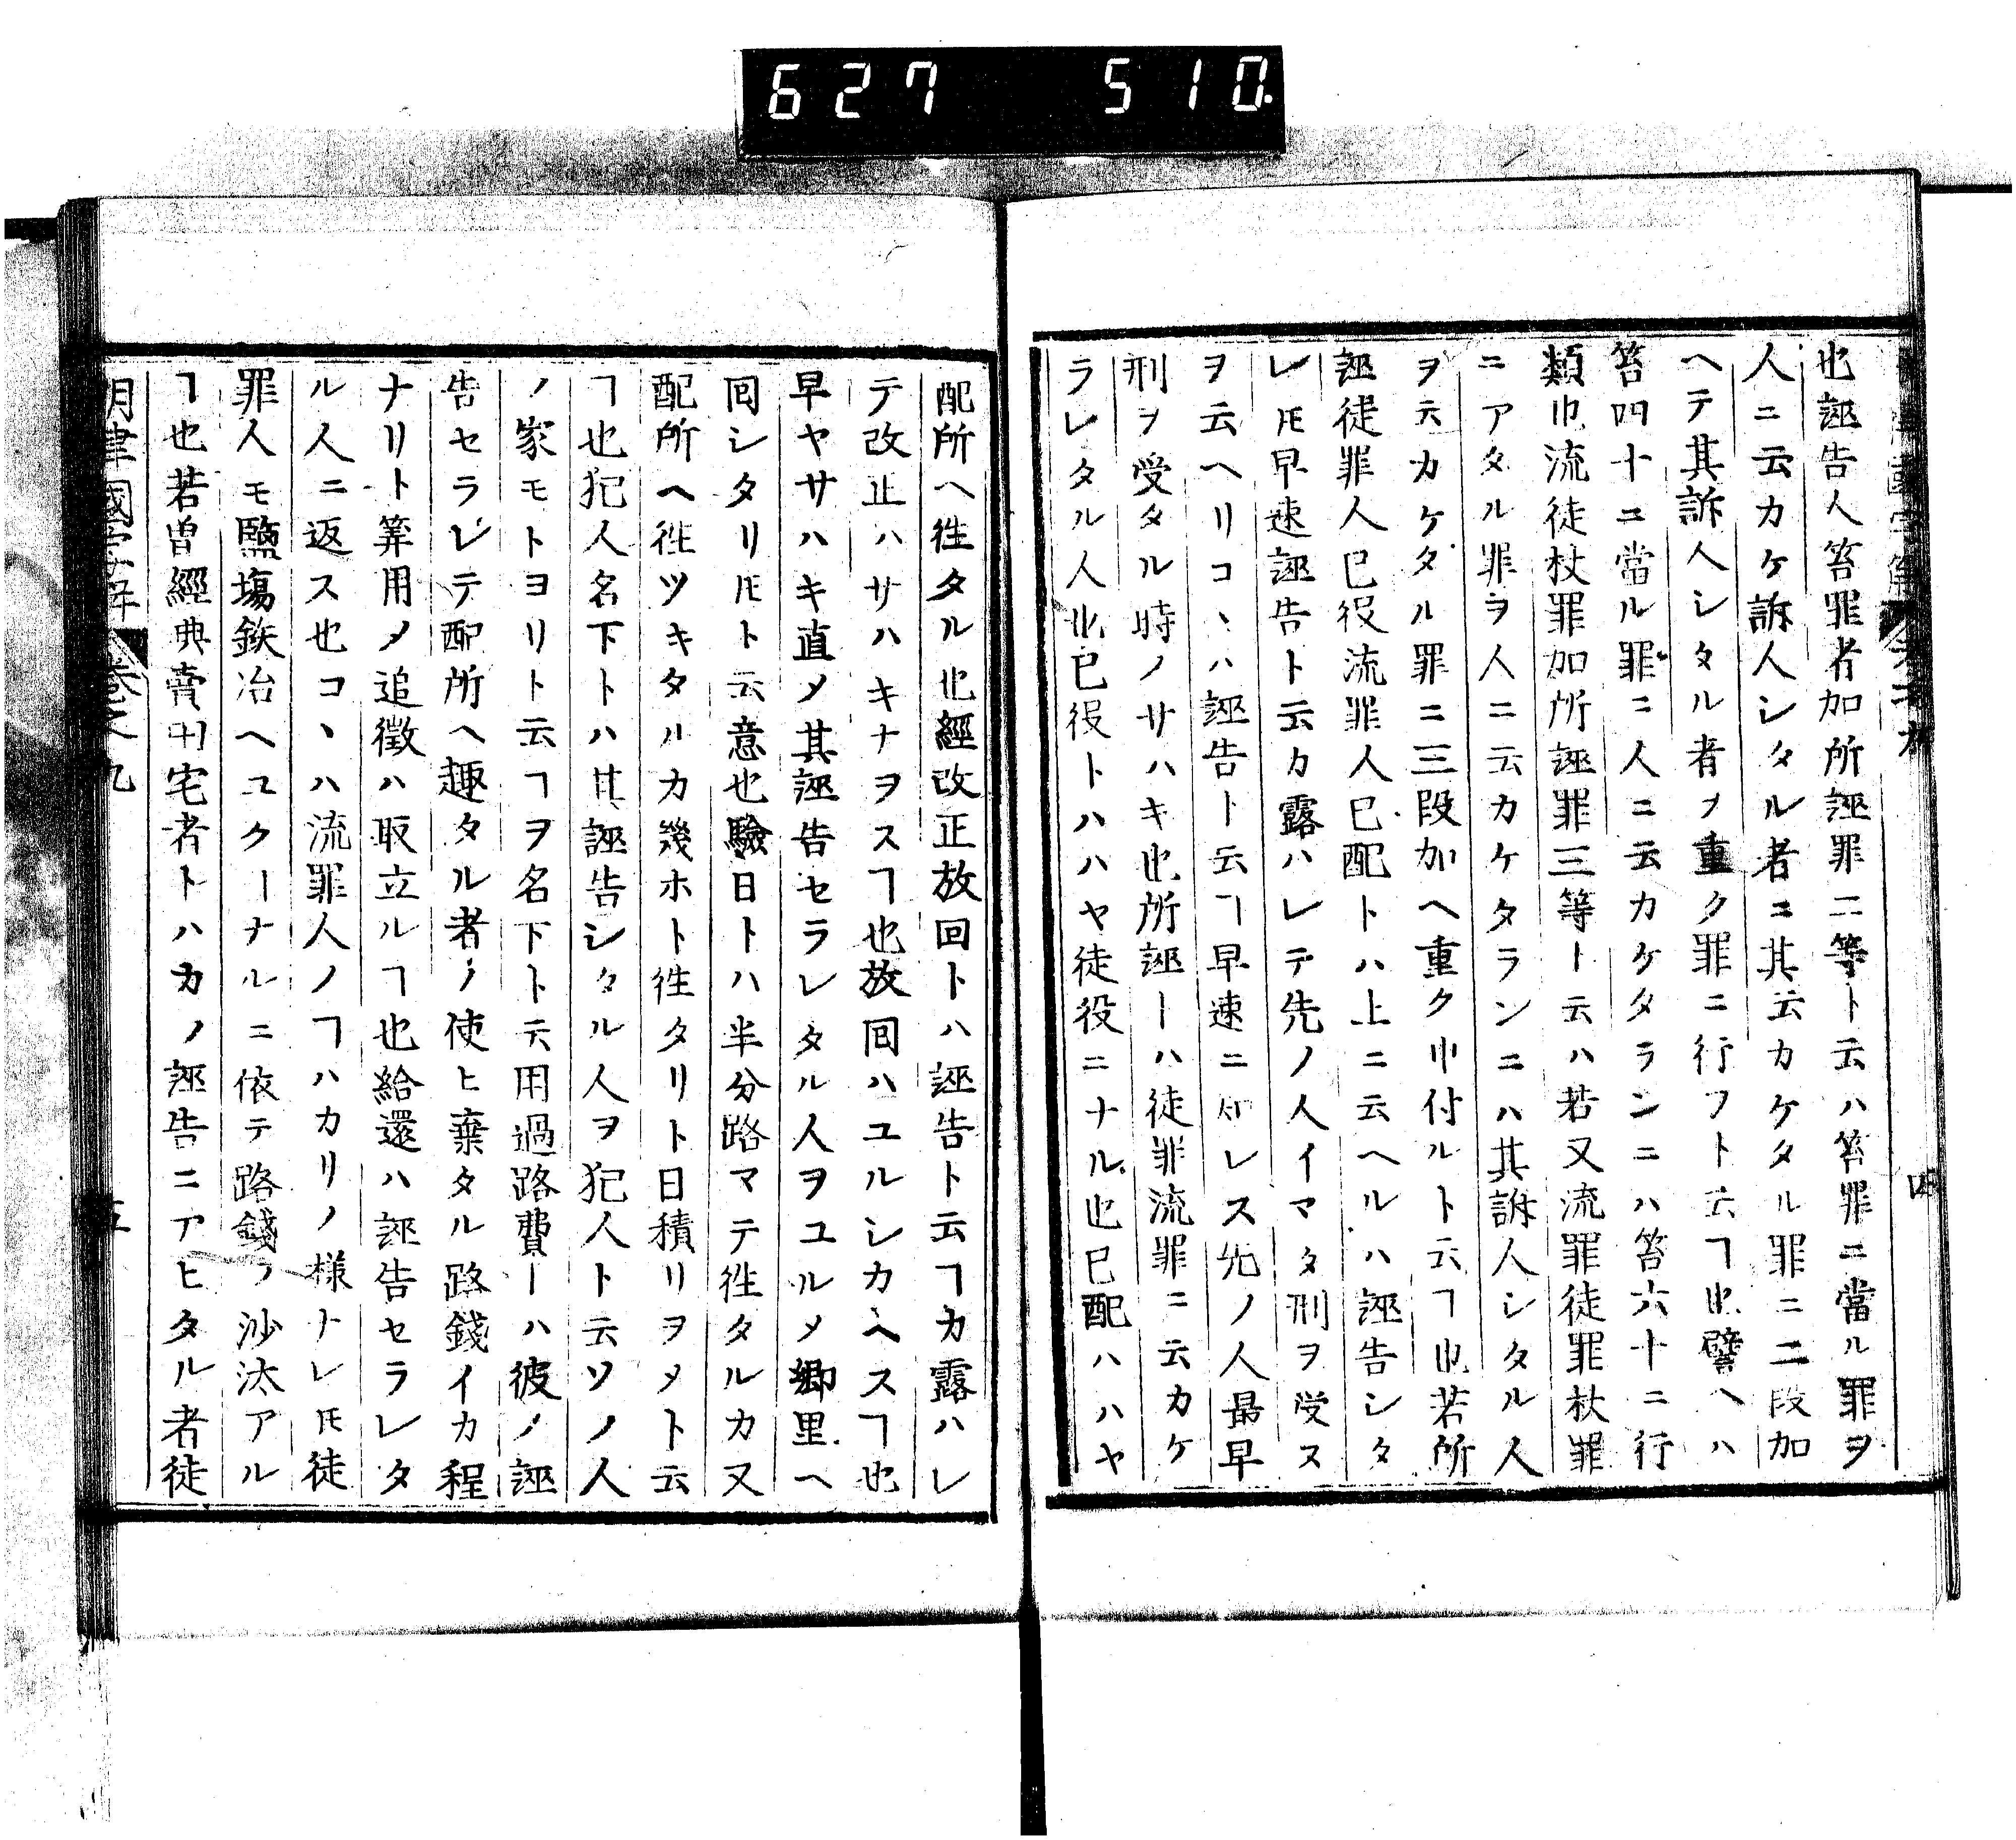 627 510
也誣告人笞罪者加所誣罪二等ト云ハ笞罪ニ當ル罪ヲ
人ニ云カケ訴人シタル者ニ其云カケタル罪ニ二段加
ヘテ其訴人シタル者ヲ重ク罪ニ行フト云ヿ也譬ヘハ
笞四十ニ當ル罪ニ人ニ云カケタランニハ笞六十ニ行
類也流徒杖罪加所誣罪三等ト云ハ若又流罪徒罪杖罪
ニアタル罪ヲ人ニ云カケタランニハ其訴人シタル人
ヲ云カケタル罪ニ三段加ヘ重ク申付ルト云ヿ也若所
誣徒罪人已役流罪人已配トハ上ニ云ヘルハ誣告シタ
レ𪜈早速誣告ト云カ露ハレテ先ノ人イマタ刑ヲ受ス
ヲ云ヘリコヽハ誣告ト云ヿ早速ニ知レス先ノ人最早
刑ヲ受タル時ノサハキ也所誣ーハ徒罪流罪ニ云カケ
ラレタル人也已役トハハヤ徒役ニナル也已配ハハヤ
四
配所ヘ徃タル也經改正放回トハ誣告ト云ヿカ露ハレ
テ改正ハサハキナヲスヿ也放回ハユルシカヘスヿ也
早ヤサハキ直メ其誣告セラレタル人ヲユルメ郷里ヘ
回シタリ𪜈ト云意也驗日トハ半分路マテ徃タルカ又
配所ヘ徃ツキタルカ幾ホト徃タリト日積リヲメト云
ヿ也犯人名下トハ其誣告シタル人ヲ犯人ト云ソノ人
ノ家モトヨリト云ヿヲ名下ト云用過路費ーハ彼ノ誣
告セラレテ配所ヘ趣タル者ノ使ヒ棄タル路錢イカ程
ナリト筭用メ追徵ハ取立ルヿ也給還ハ誣告セラレタ
ル人ニ返ス也コヽハ流罪人ノヿハカリノ様ナレ𪜈徒
罪人モ鹽塲鉄冶ヘユクーナルニ依テ路錢ノ沙汰アル
ヿ也若曽經典賣田宅者トハカノ誣告ニアヒタル者徒
明律國字解 卷之九
五